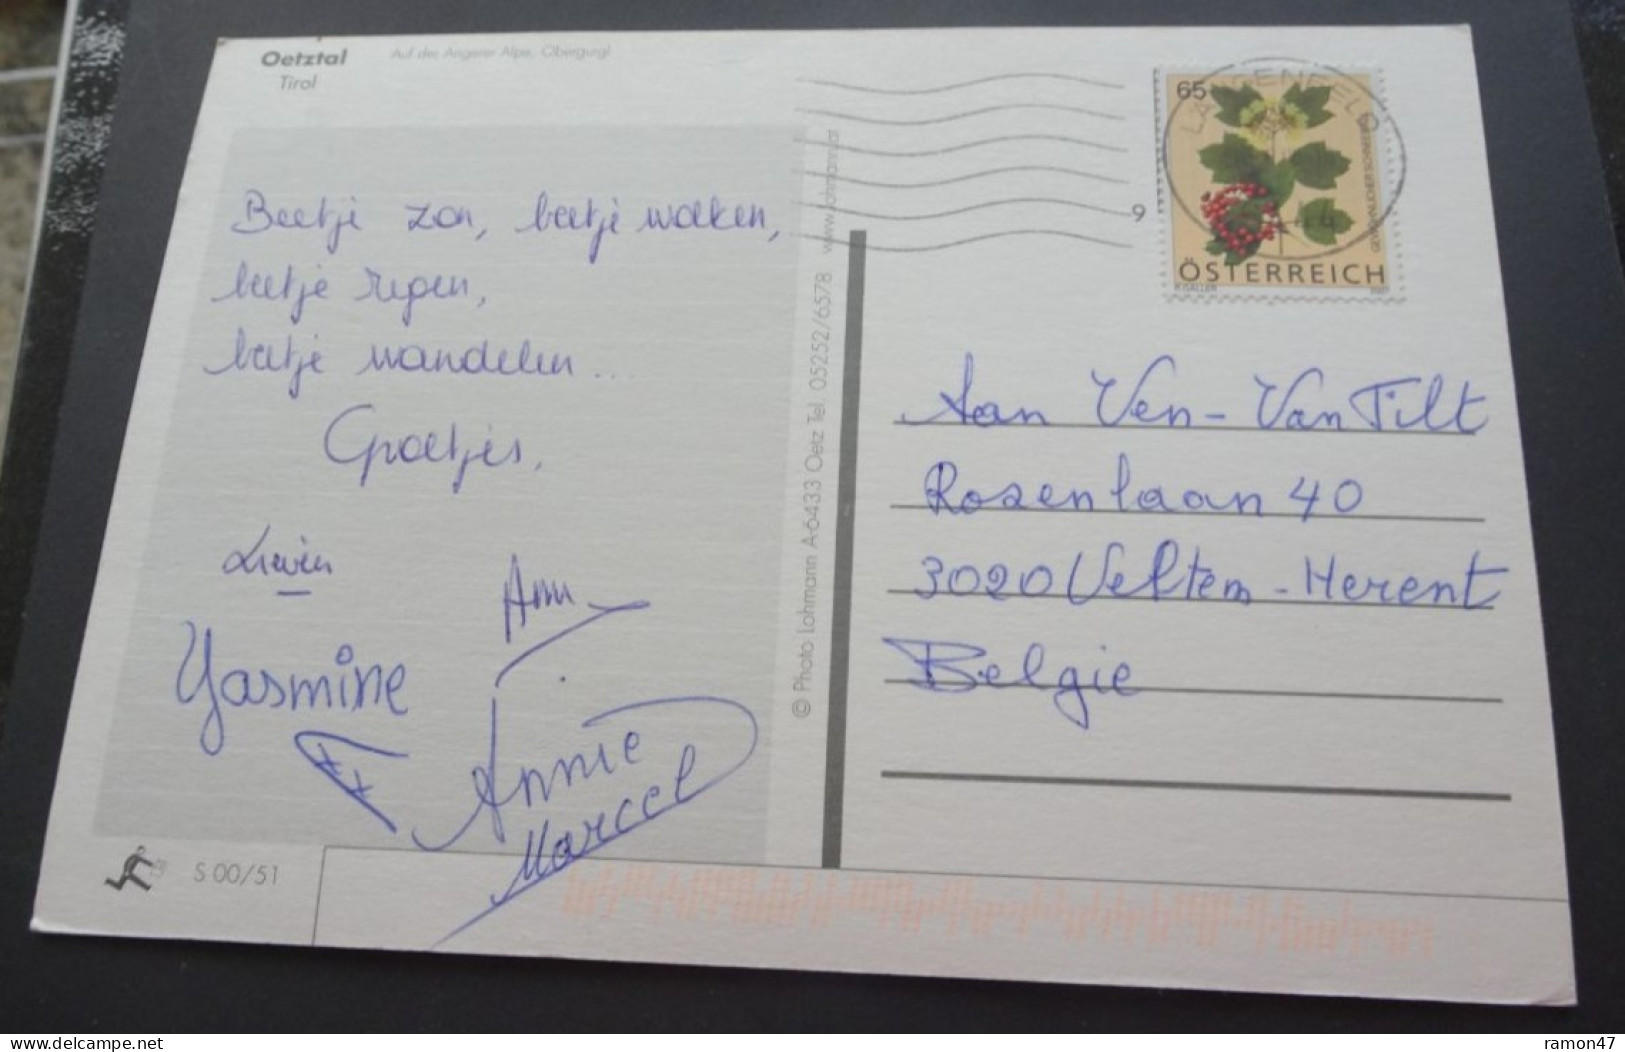 Oetztal
Auf der Angerer Alpe, Obergurgl
Tirol
65
ÖSTERREICH
9
Beetje zon, beetje wolken,
beetje regen,
beetje wandelen...
Groetjes,
Lieven
Ann
Yasmine
Annie
Marcel
© Photo Lohmann A-6433 Oetz Tel. 05252/6578 www.lohmann.at
Aan Ven-Van Tilt
Rozenlaan 40
3020 Veltem-Herent
Belgie
S 00/51
Delcampe.net
ramon47